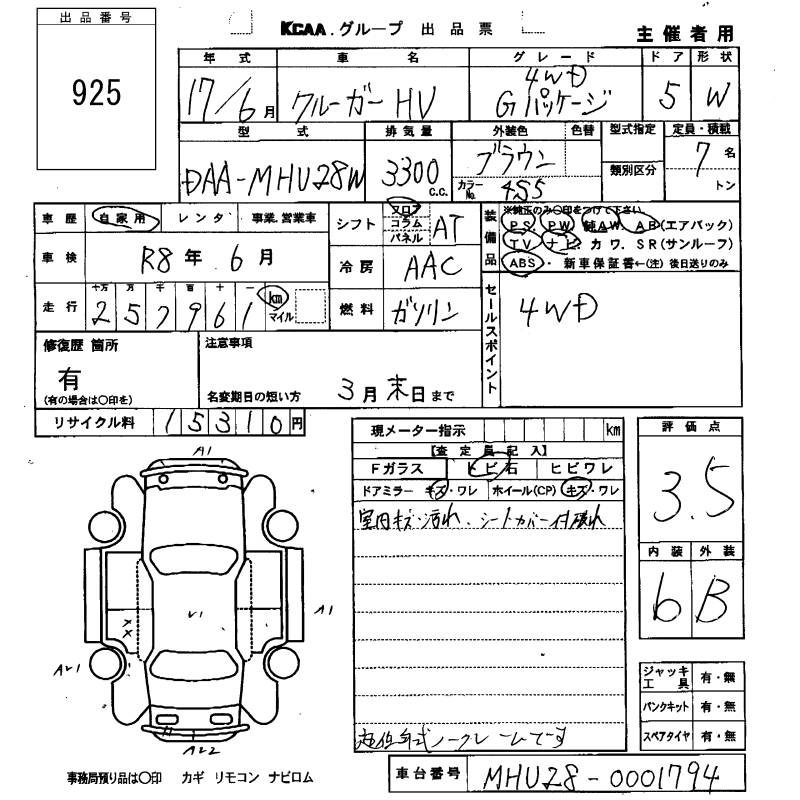 出品番号
925
KCAA.グループ 出品票
主催者用
年式 車名 グレード ドア 形状
17/6月 クルーガーHV 4WD Gパッケージ 5 W
型式 排気量 外装色 色替 型式指定 定員・積載
DAA-MHU28W 3300 C.C. ブラウン 類別区分 7名
カラーNo. 4S5 トン
車歴 自家用 レンタ 事業.営業車
シフト フロア コラム パネル AT
装備品
※純正のみ○印をつけて下さい
PS PW 純AW. AB(エアバック)
TV ナビ. カワ. SR(サンルーフ)
ABS・新車保証書←(注)後日送りのみ
車検 R8年 6月
冷房 AAC
走行 十万 万 千 百 十 一
257961 km マイル
燃料 ガソリン
セールスポイント
4WD
修復歴 箇所
有
(有の場合は○印を)
注意事項
名変期日の短い方 3月末日まで
リサイクル料 15310円
現メーター指示 km
【査定員記入】
Fガラス トビ石 ヒビワレ
ドアミラー キズ・ワレ ホイール(CP) キズ・ワレ
室内キズ・汚れ、シートカバー付破れ
低年式ノークレームです
評価点
3.5
内装 外装
6 B
A1
V1
A1
XX
AV1
AV2
ジャッキ工具 有・無
パンクキット 有・無
スペアタイヤ 有・無
事務局預り品は○印 カギ リモコン ナビロム
車台番号 MHU28-0001794